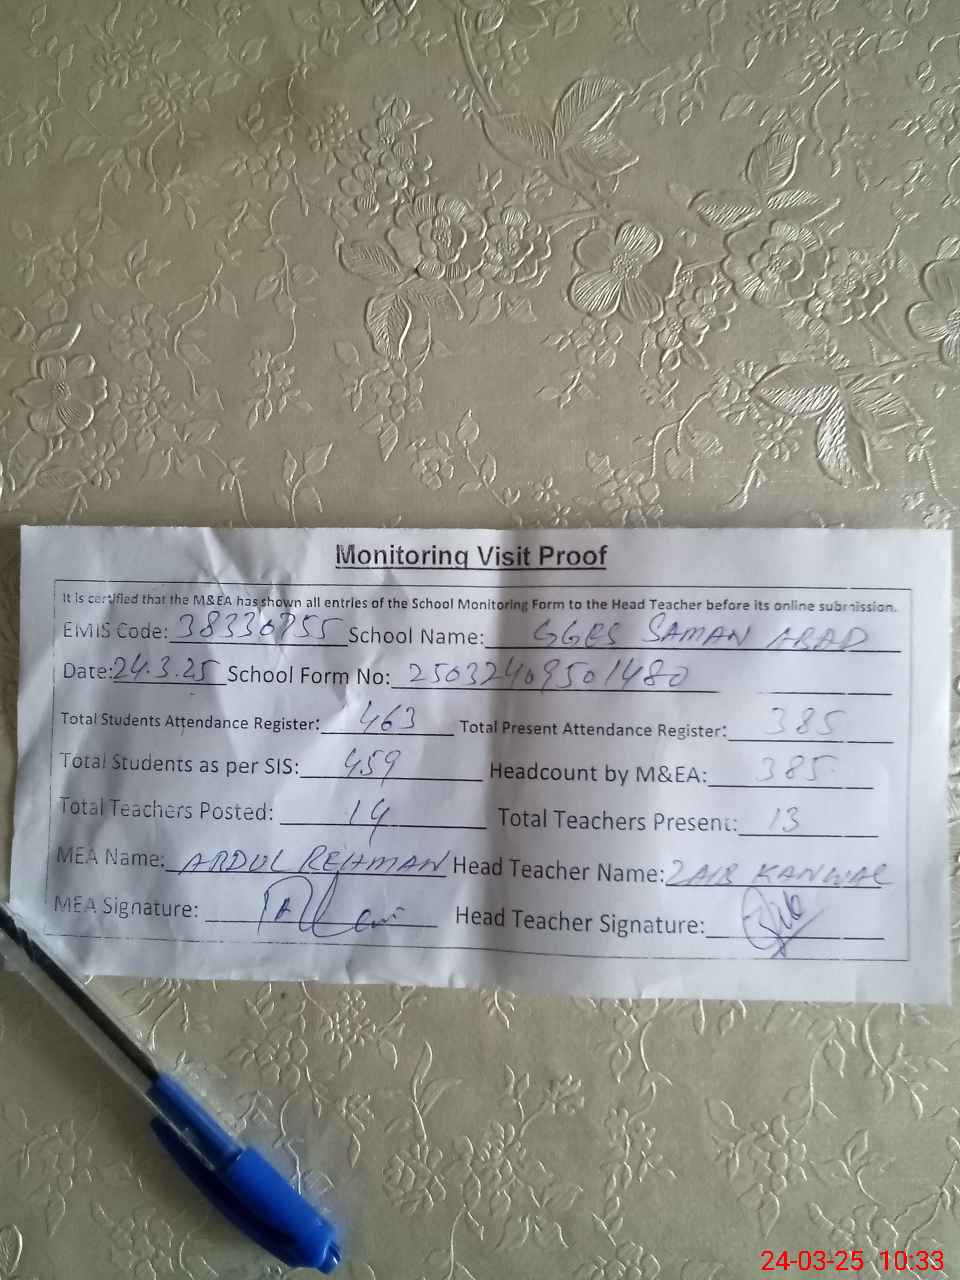 Monitoring Visit Proof
It is certified that the M&EA has shown all entries of the School Monitoring Form to the Head Teacher before its online submission.
EMIS Code: 38330755 School Name: GGES SAMAN ABAD
Date: 24.3.25 School Form No: 25032409501480
Total Students Attendance Register: 463 Total Present Attendance Register: 385
Total Students as per SIS: 459 Headcount by M&EA: 385
Total Teachers Posted: 14 Total Teachers Present: 13
MEA Name: ABDUL REHMAN Head Teacher Name: KANWAL
MEA Signature: Head Teacher Signature:
24-03-25 10:33